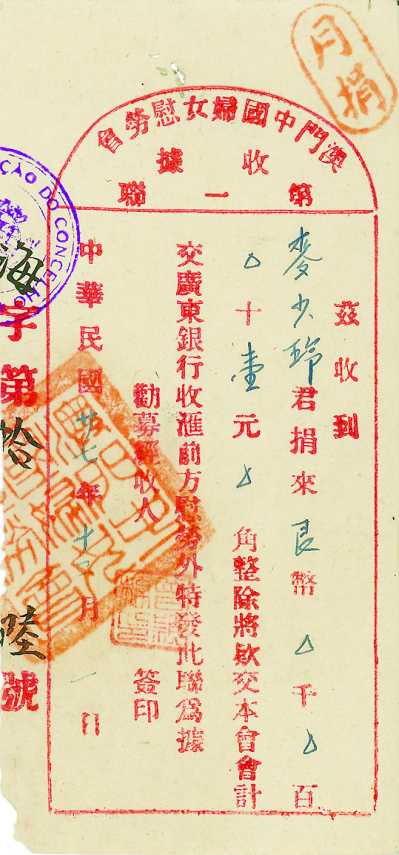 月捐
澳門中國婦女慰勞會
收據
第一聯
茲收到
麥少琼君捐來艮幣〇千〇百
〇十壹元〇角整除將欵交本會會計
交廣東銀行收滙前方慰勞外特發此聯爲據
勸募經收人 簽印
中華民國廿七年十二月一日
海字第拾陸號
ÇÃO DO CONCELHO